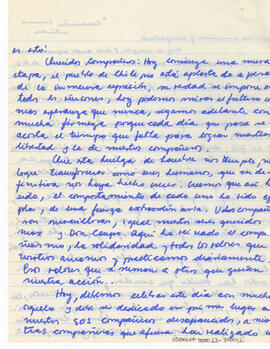 es está!
Queridos Compañeros: Hoy comienza una nueva
etapa, el pueblo de Chile que está aplastado a pesar
de la inmensa represión, su verdad se impone en
todos los rincones, hoy podemos mirar el futuro con
más esperanza que nunca, sigamos adelante con
mucha firmeza porque cada día que pasa se
acorta el tiempo que falta para lograr nuestra
libertad y la de nuestros compañeros.
Que esta huelga de hambre nos
transformar como seres humanos, que en de-
finitiva nos haga hecho crecer. Creemos que así ha
sido, el comportamiento de cada uno ha sido ejem-
plar, de una fuerza extraordinaria. Udes. compañeros
son maravillosos, igual nuestros más queridos
y Don Campo. Aquí ha reinado el compa-
ñerismo, la solidaridad y todos los valores que
nosotros amamos y practicamos diariamente.
Esos valores que se suman a otros, que guían
nuestra acción.
Hoy, debemos celebrar este día con mucho
orgullo y debe ser dedicado en primer lugar a
nuestros 505 compañeros desaparecidos, a nues-
tras compañeras que afuera han realizado un